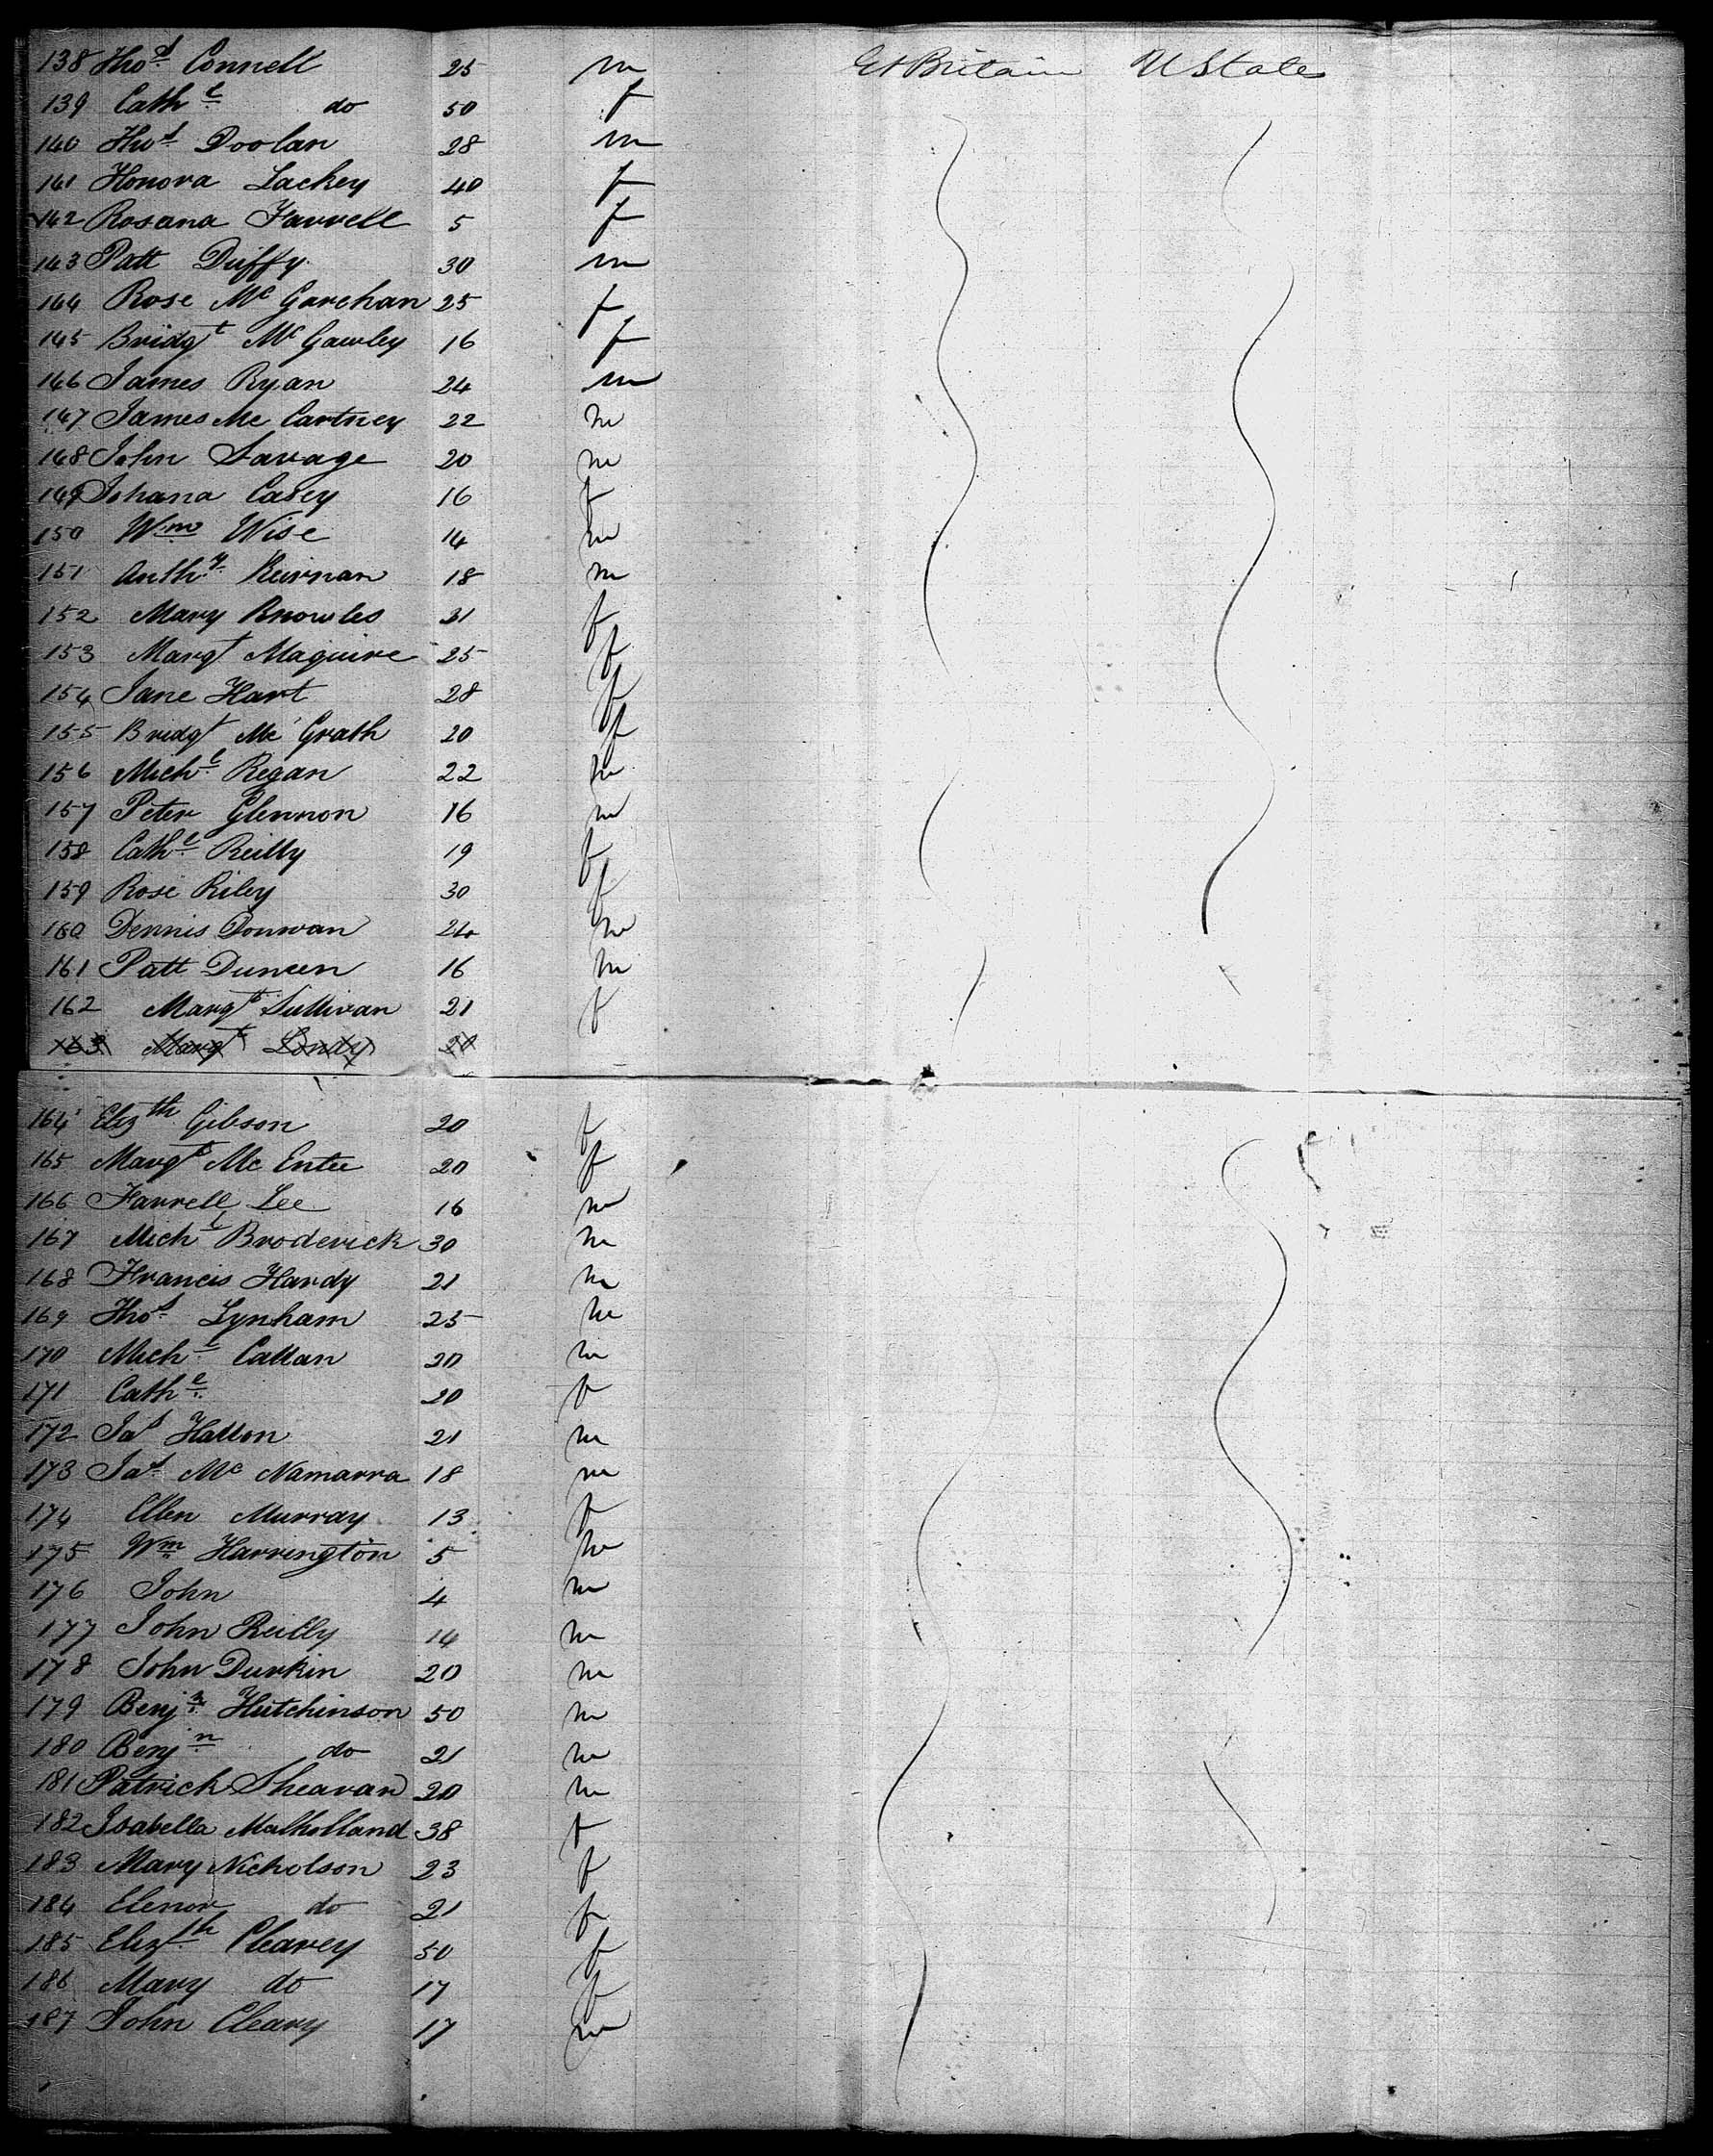 138 Thos Connell 25 m Gt Britain U States
139 Cathe do 50 f
140 Thos Doolan 28 m
141 Honora Lackey 40 f
142 Rosana Farrell 5 f
143 Patt Duffy 30 m
144 Rose Mc Garehan 25 f
145 Bridgt Mc Gawley 16 f
146 James Ryan 24 m
147 James Mc Cartney 22 m
148 John Savage 20 m
149 Johana Casey 16 f
150 Wm Wise 14 m
151 Anthy Keirnan 18 m
152 Mary Knowles 31 f
153 Margt Maguire 25 f
154 Jane Hart 28 f
155 Bridgt Mc Grath 20 f
156 Michl Regan 22 m
157 Peter Glennon 16 m
158 Cathe Reilly 19 f
159 Rose Riley 30 f
160 Dennis Donovan 24 m
161 Patt Duncen 16 m
162 Margt Sullivan 21 f
163 Margt 20
164 Elizth Gibson 20 f
165 Margt Mc Entee 20 f
166 Farrell Lee 16 m
167 Michl Broderick 30 m
168 Francis Hardy 21 m
169 Thos Lynham 25 m
170 Michl Callan 20 m
171 Cathe 20 f
172 Jas Hatton 21 m
173 Jas Mc Namarra 18 m
174 Ellen Murray 13 f
175 Wm Harrington 5 m
176 John 4 m
177 John Reilly 14 m
178 John Durkin 20 m
179 Benjn Hutchinson 50 m
180 Benjn do 21 m
181 Patrick Sheavan 20 m
182 Isabella Mulholland 38 f
183 Mary Nicholson 23 f
184 Elenor do 21 f
185 Elizth Clearey 50 f
186 Mary do 17 f
187 John Cleary 17 m